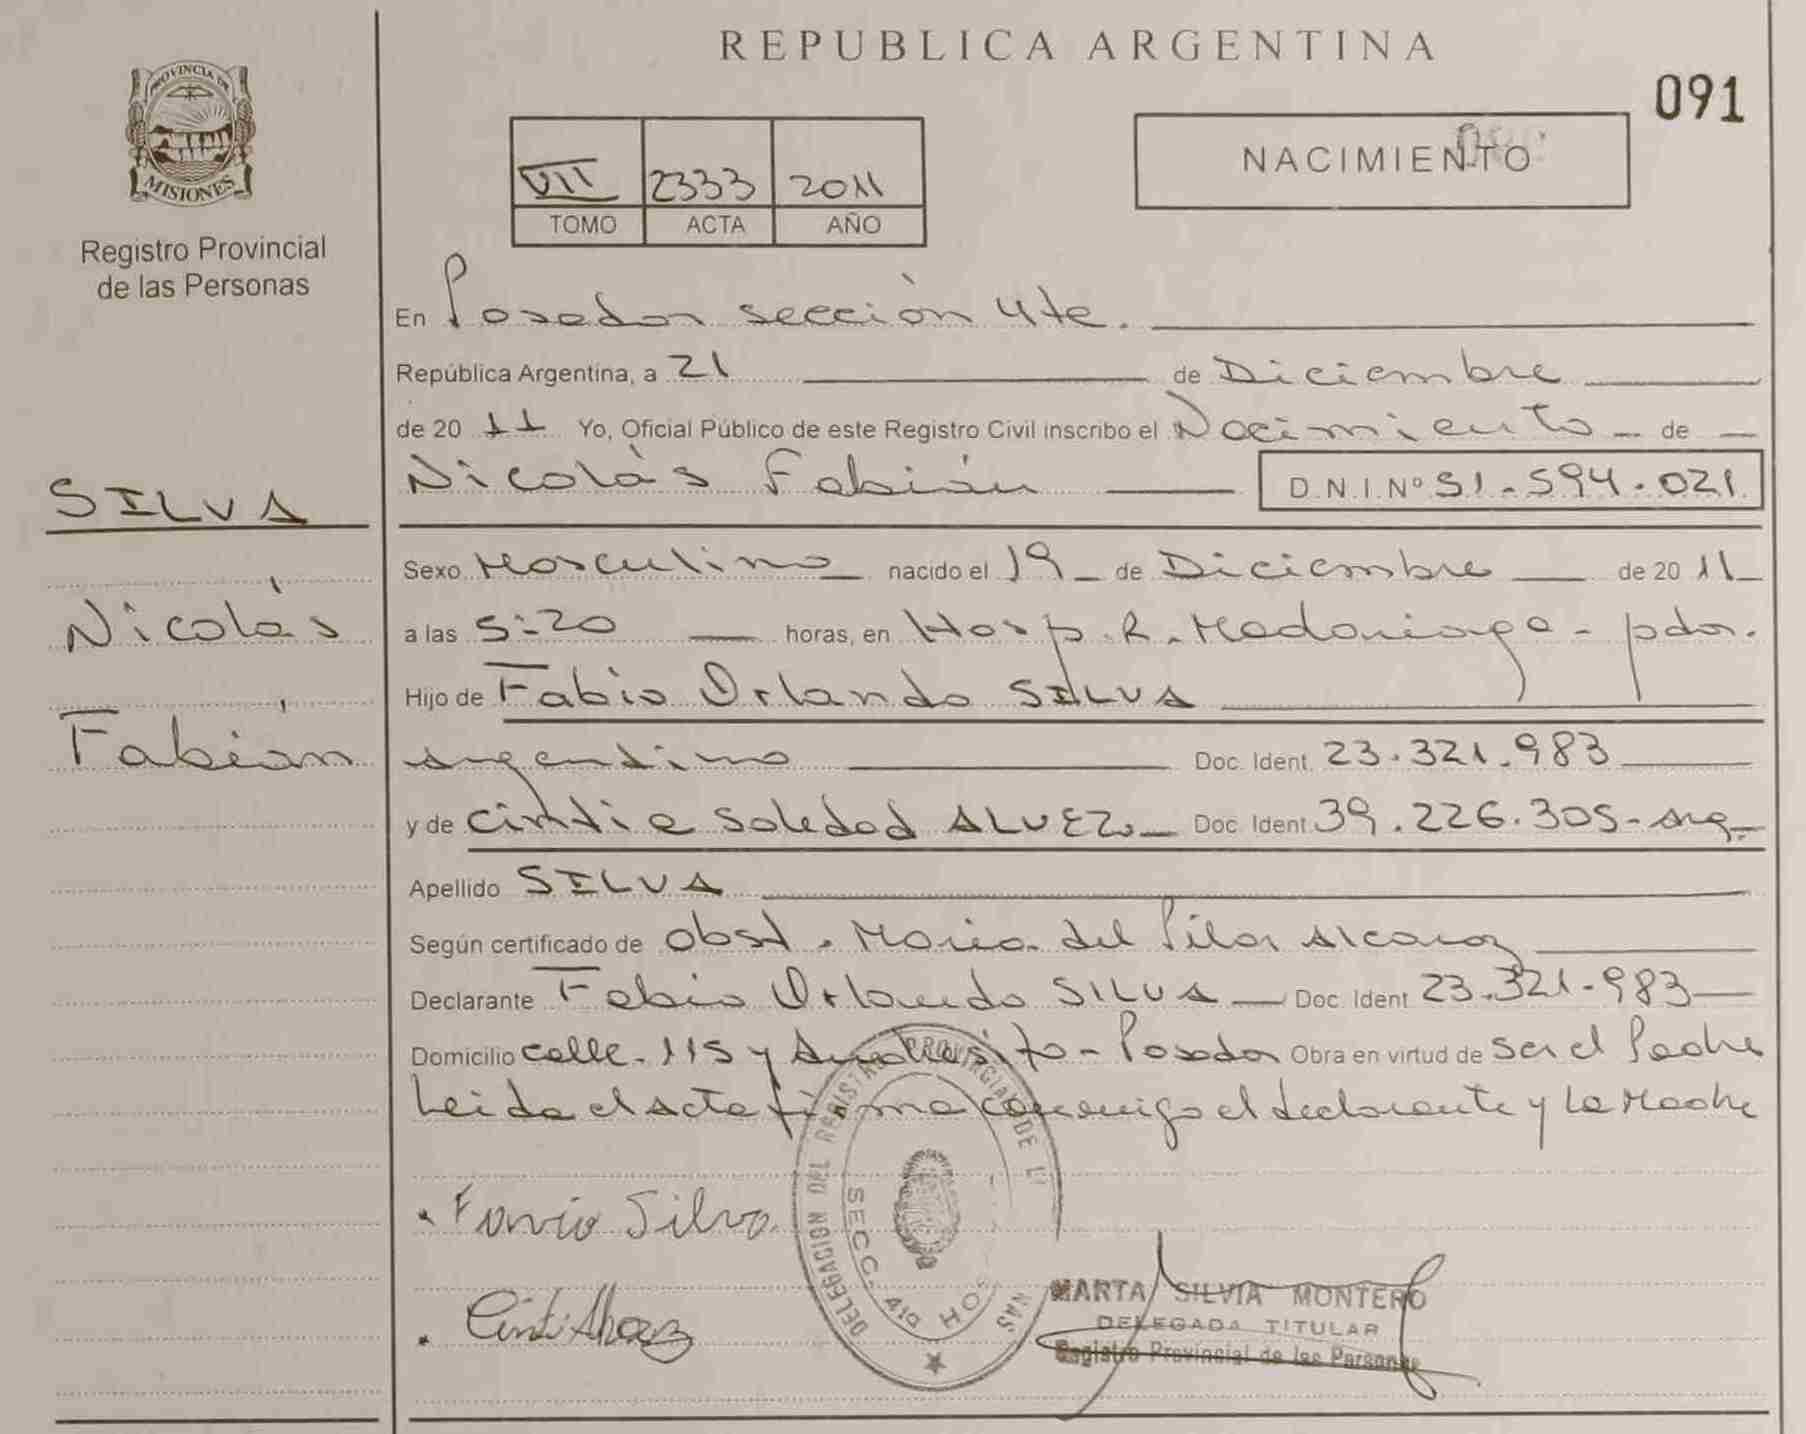 REPUBLICA ARGENTINA
091
PROVINCIA DE
MISIONES
Registro Provincial
de las Personas
VII 2333 2011
TOMO ACTA AÑO
NACIMIENTO
En Posadas sección 4ta.
República Argentina, a 21 de Diciembre
de 2011 Yo, Oficial Público de este Registro Civil inscribo el Nacimiento de
Nicolás Fabián D.N.I.Nº 51.594.021
SILVA
Nicolás
Fabián
Sexo Masculino nacido el 19 de Diciembre de 2011
a las 5:20 horas, en Hosp. R. Madariaga - pdas.
Hijo de Fabio Orlando SILVA
argentino Doc. Ident. 23.321.983
y de Cintia Soledad ALVEZ Doc. Ident. 39.226.305 - arg.
Apellido SILVA
Según certificado de Obst. Maria del Pilar Alcaraz
Declarante Fabio Orlando SILVA Doc. Ident 23.321.983
Domicilio calle 115 y Andresito - Posadas Obra en virtud de ser el Padre
Leida el acta firma conmigo el declarante y la Madre
Favio Silva
DELEGACION DEL REGISTRO PROVINCIAL DE
SECC. 4ta
MARTA SILVIA MONTERO
DELEGADA TITULAR
Registro Provincial de las Personas